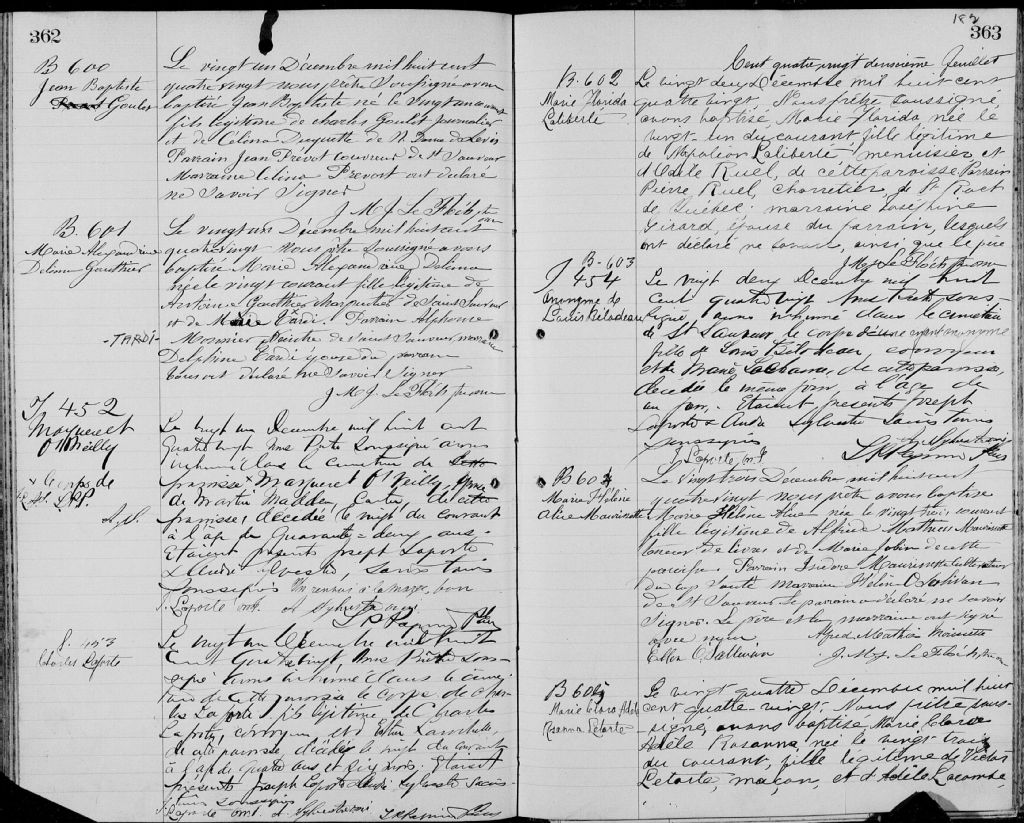 362
B 600
Jean Baptiste
Goulet
Le vingt un Décembre mil huit cent
quatre vingt nous prêtre soussigné avons
baptisé Jean Baptiste né le vingt
fils légitime de Charles Goulet journalier
et de Célina Duquette de N. Dame de Lévis
Parrain Jean Prévot couvreur de St Sauveur
Marraine Célina Prevost ont déclaré
ne savoir signer
J. M. J. Le
B. 601
Marie Alexandrine
Delima Gauthier
- TARDI -
Le vingt un Décembre mil huit cent
quatre vingt nous ptre soussigné avons
baptisé Marie Alexandrine Delima
née le vingt courant fille légitime de
Antoine Gauthier charpentier de Saint Sauveur
et de Marie Tardi. Parrain Alphonse
Monnier peintre de Saint Sauveur marraine
Delphine Tardi épouse du parrain
tous ont déclaré ne savoir signer
J. M. J. Le
S 452
Margueret
O'Reilly
x le corps de
A. S.
Le vingt un Décembre mil huit cent
quatre vingt Nous Prêtre soussigné avons
inhumé dans le cimetière de cette
paroisse x Margueret O'Reilly, épouse
de Martin Madden, de cette
paroisse, décédée le vingt du courant
à l'âge de quarante-deux ans.
Etaient présents Joseph Laporte
& André Sylvestre, sans tous
soussignés Un renvoi à la marge, bon
J. Laporte A Sylvestre
Ptre
S. 453
Charles Laporte
Le vingt un Décembre mil huit
cent quatre vingt, Nous Prêtre sous-
signé avons inhumé dans le cime-
tière de cette paroisse le corps de Char-
les Laporte, fils légitime de Charles
Laporte, et d'Esther
de cette paroisse, décédé le vingt du courant
à l'âge de quatre ans et six mois. Etaient
présents Joseph Laporte André Sylvestre
soussignés
Laporte A Sylvestre
182
363
Cent quatre vingt deuxième feuillet
B. 602
Marie Florida
Laliberté
Le vingt deux Décembre mil huit cent
quatre vingt, Nous prêtre soussigné,
avons baptisé, Marie Florida, née le
vingt-un du courant, fille légitime
de Napoléon Laliberté menuisier et
d'Odele Ruel, de cette paroisse. Parrain
Pierre, Ruel, charretier, de St Roch
de Québec, marraine Joséphine
Girard, épouse du parrain, lesquels
ont déclaré ne savoir, ainsi que le père
J. M. J. Le
B - 603
S 454
Anonyme de
Louis Bilodeau
Le vingt deux Décembre mil huit
cent quatre vingt Nous Prêtre sous-
signé avons inhumé dans le cimetière
de St Sauveur le corps d'une enfant anonyme
fille de Louis Bilodeau,
et de Marie, de cette paroisse,
décédée le même jour, à l'âge de
un jour. Etaient présents Joseph
Laporte & André Sylvestre
soussignés
A Sylvestre
J. Laporte
B 604
Marie Hélène
Alice Maurissette
Le vingt trois Décembre mil huit cent
quatre vingt nous prêtre avons baptisé
Marie Hélène Alice née le vingt trois courant
fille légitime de Alfred Mathieu Maurissette
de livres et de Marie Jobin de cette
paroisse. Parrain Isidore Maurissette cultivateur
du Cap Santé Marraine Hélène O'Sulivan
de St Sauveur le parrain a déclaré ne savoir
signer. Le père et la marraine ont signé
avec nous. Alfred Mathieu Moissette
Ellen O'Sullivan J. M. J. Le
B 605
Marie Clara Adèle
Rosanna Letarte
Le vingt quatre Décembre mil huit
cent quatre-vingt, Nous prêtre sous-
signé, avons baptisé Marie Clara
Adèle Rosanna, née le vingt trois
du courant, fille légitime de Victor
Letarte, maçon, et d'Adèle Lacombe,